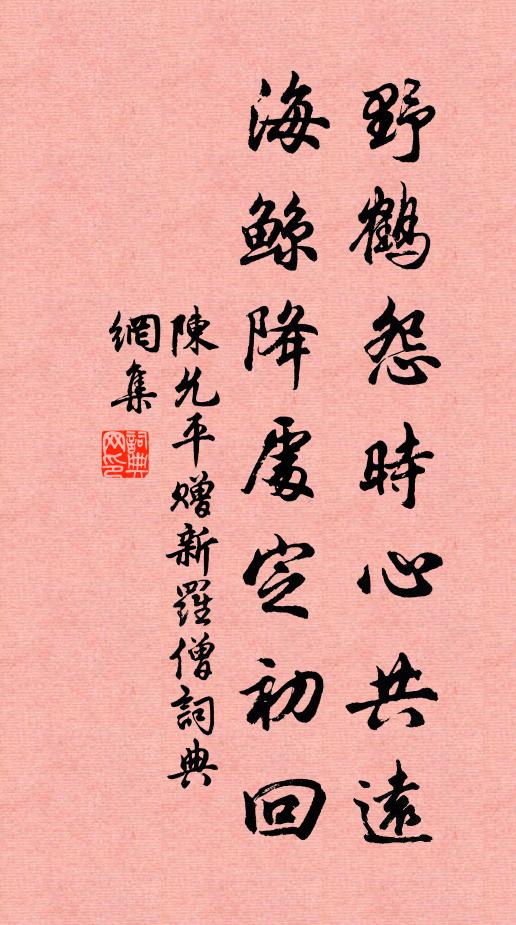 野鶴怨時心共遠
海鲸降處定初回
陳允平赠新羅僧詞典
網集
詞典网印